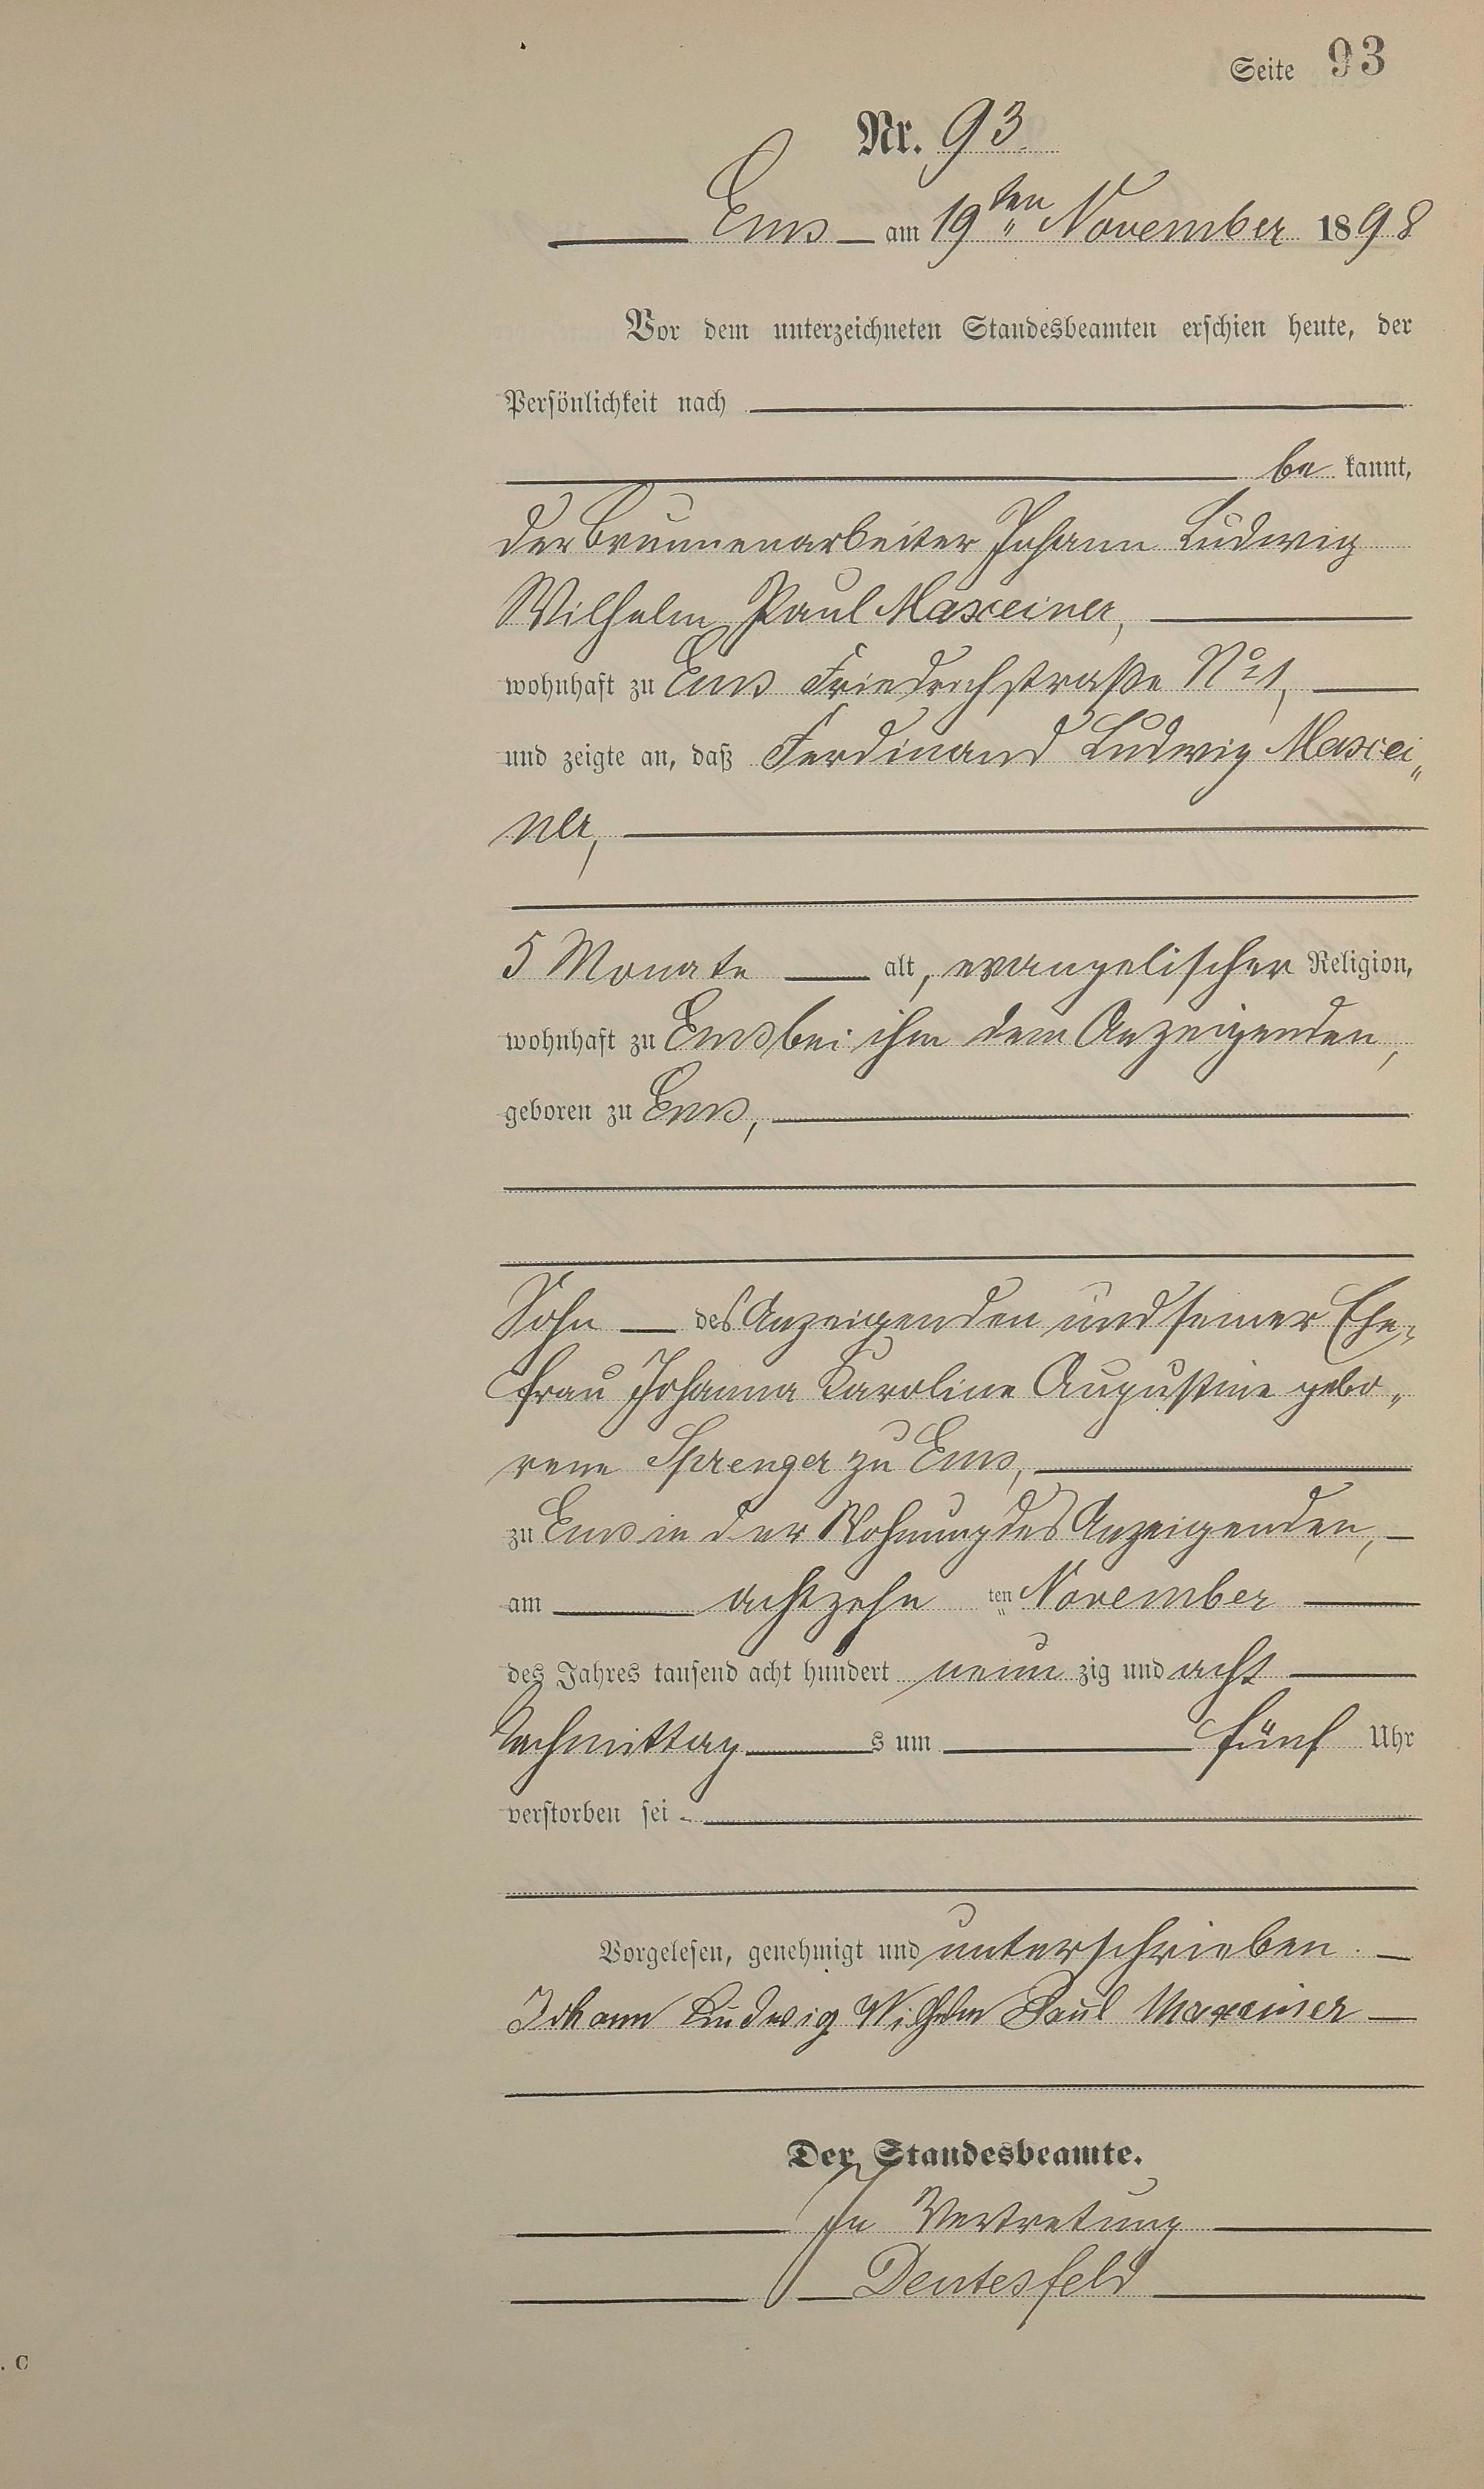 Seite 93
Nr. 93.
Ems am 19ten November 1898
Vor dem unterzeichneten Standesbeamten erschien heute, der
Persönlichkeit nach
be kannt,
der Brunnenarbeiter Johann Ludwig
Wilhelm Paul Maxeiner,
wohnhaft zu Ems Friedrichstraße No 21,
und zeigte an, daß Ferdinand Ludwig Maxei„
ner,
5 Monate alt, evangelischer Religion,
wohnhaft zu Ems bei ihm dem Anzeigenden,
geboren zu Ems,
Sohn des Anzeigenden und seiner Ehe„
frau Johanna Karoline Augustine gebo„
rene Sprenger zu Ems,
zu Ems in der Wohnung des Anzeigenden,
am achtzehn ten November
des Jahres tausend acht hundert neun zig und acht
Nachmittag s um fünf Uhr
verstorben sei
Vorgelesen, genehmigt und unterschrieben.
Johann Ludwig Wilhelm Paul Maxeiner
Der Standesbeamte.
In Vertretung
Dentesfeld
. C